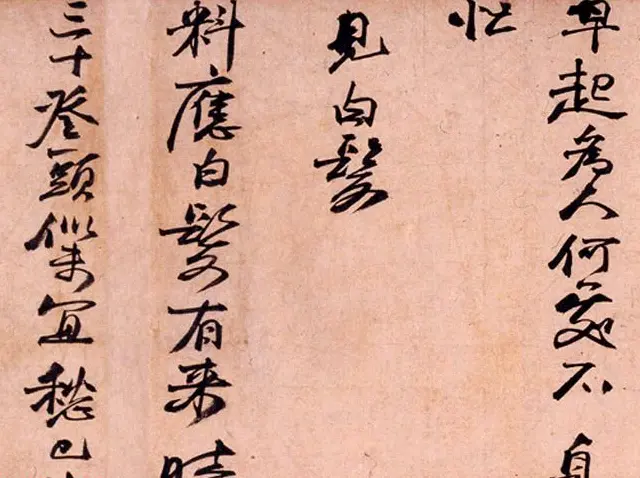 早起為人何處不
忙
見白髮
料應白髮有来時
三十登頭似未宜愁已